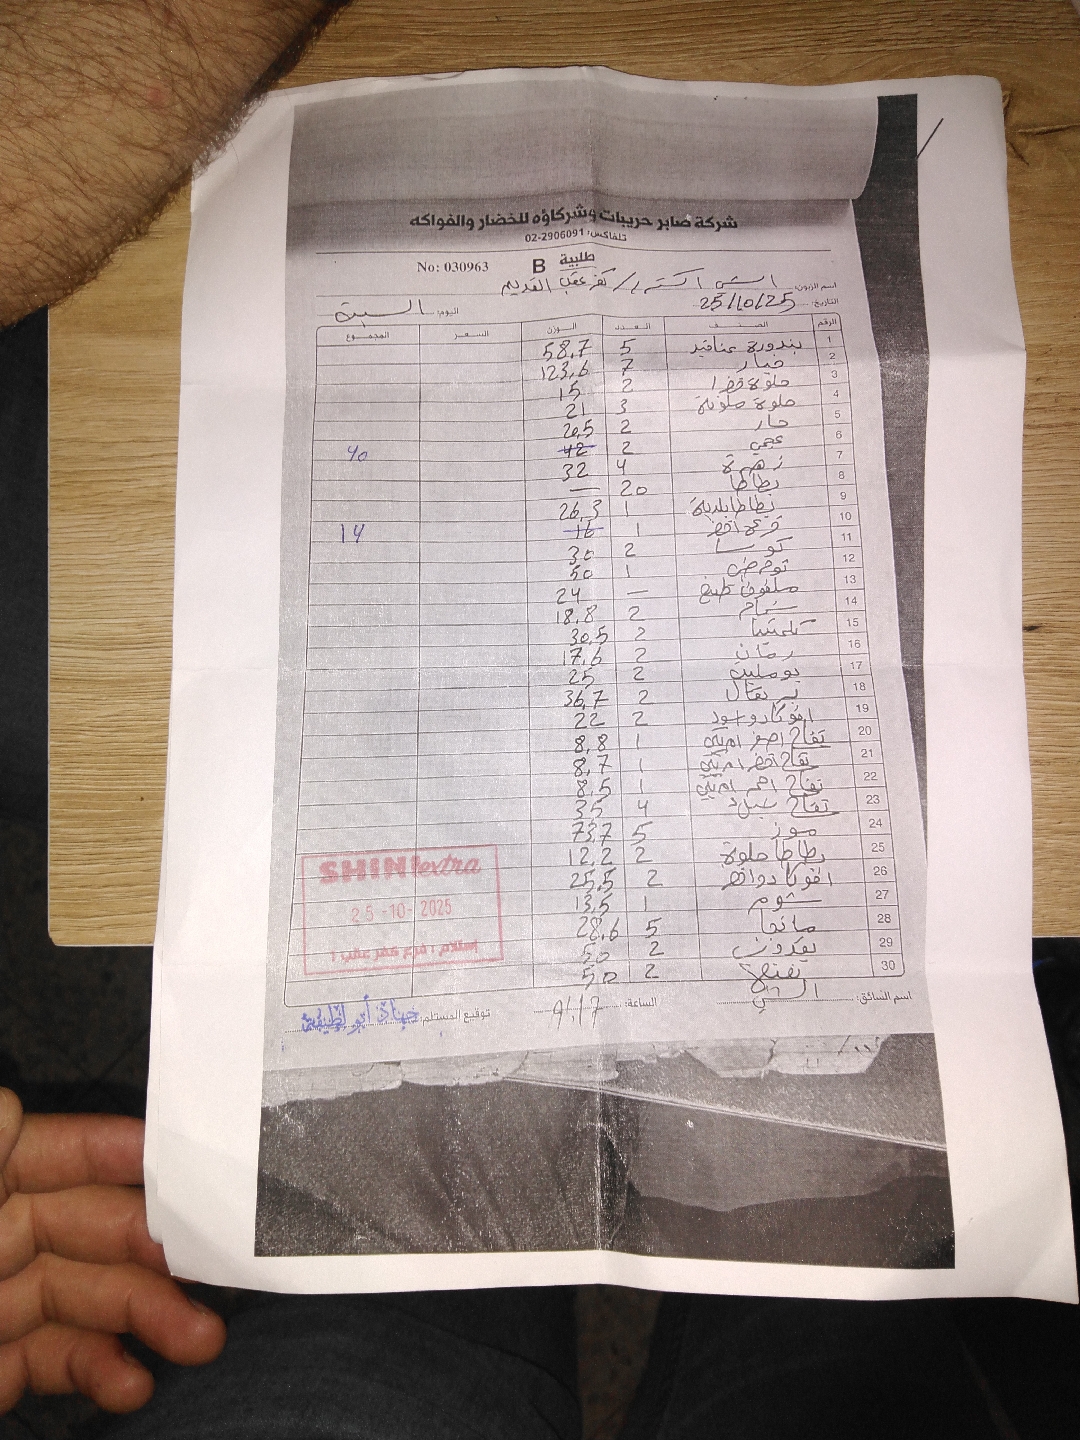 شركة صابر حريبات وشركاؤه للخضار والفواكه
تلفاكس: 02-2906091
طلبية B No: 030963
اسم الزبون: الشني اكسترا / كفر عقب القديم
التاريخ: 25/10/25 اليوم: السبت
الرقم الصنف العدد الوزن السعر المجموع
1 بندورة عناقيد 5 58,7
2 خيار 7 123,6
3 حلوة خضرا 2 15
4 حلوة ملونة 3 21
5 حار 2 20,5
6 عجمي 2 42 40
7 زهرة 4 32
8 بطاطا 20 —
9 بطاطا بلدية 1 26,3
10 قرع اخضر 1 16 14
11 كوسا 2 30
12 1 50
13 ملفوف طبخ — 24
14 شمام 2 18,8
15 كلمنتينا 2 30,5
16 رمان 2 17,6
17 بوملي 2 25
18 برتقال 2 36,7
19 افوكادو اسود 2 22
20 تفاح اصفر امريكي 1 8,8
21 تفاح اخضر امريكي 1 8,7
22 تفاح احمر امريكي 1 8,5
23 تفاح 4 35
24 موز 5 73,7
25 بطاطا حلوة 2 12,2
26 افوكادو اخضر 2 25,5
27 ثوم 1 13,5
28 مانجا 5 28,6
29 بقدونس 2 50
30 2 50
SHINI extra
25-10-2025
إستلام : فرع كفر عقب 1
اسم السائق: الساعة: توقيع المستلم: